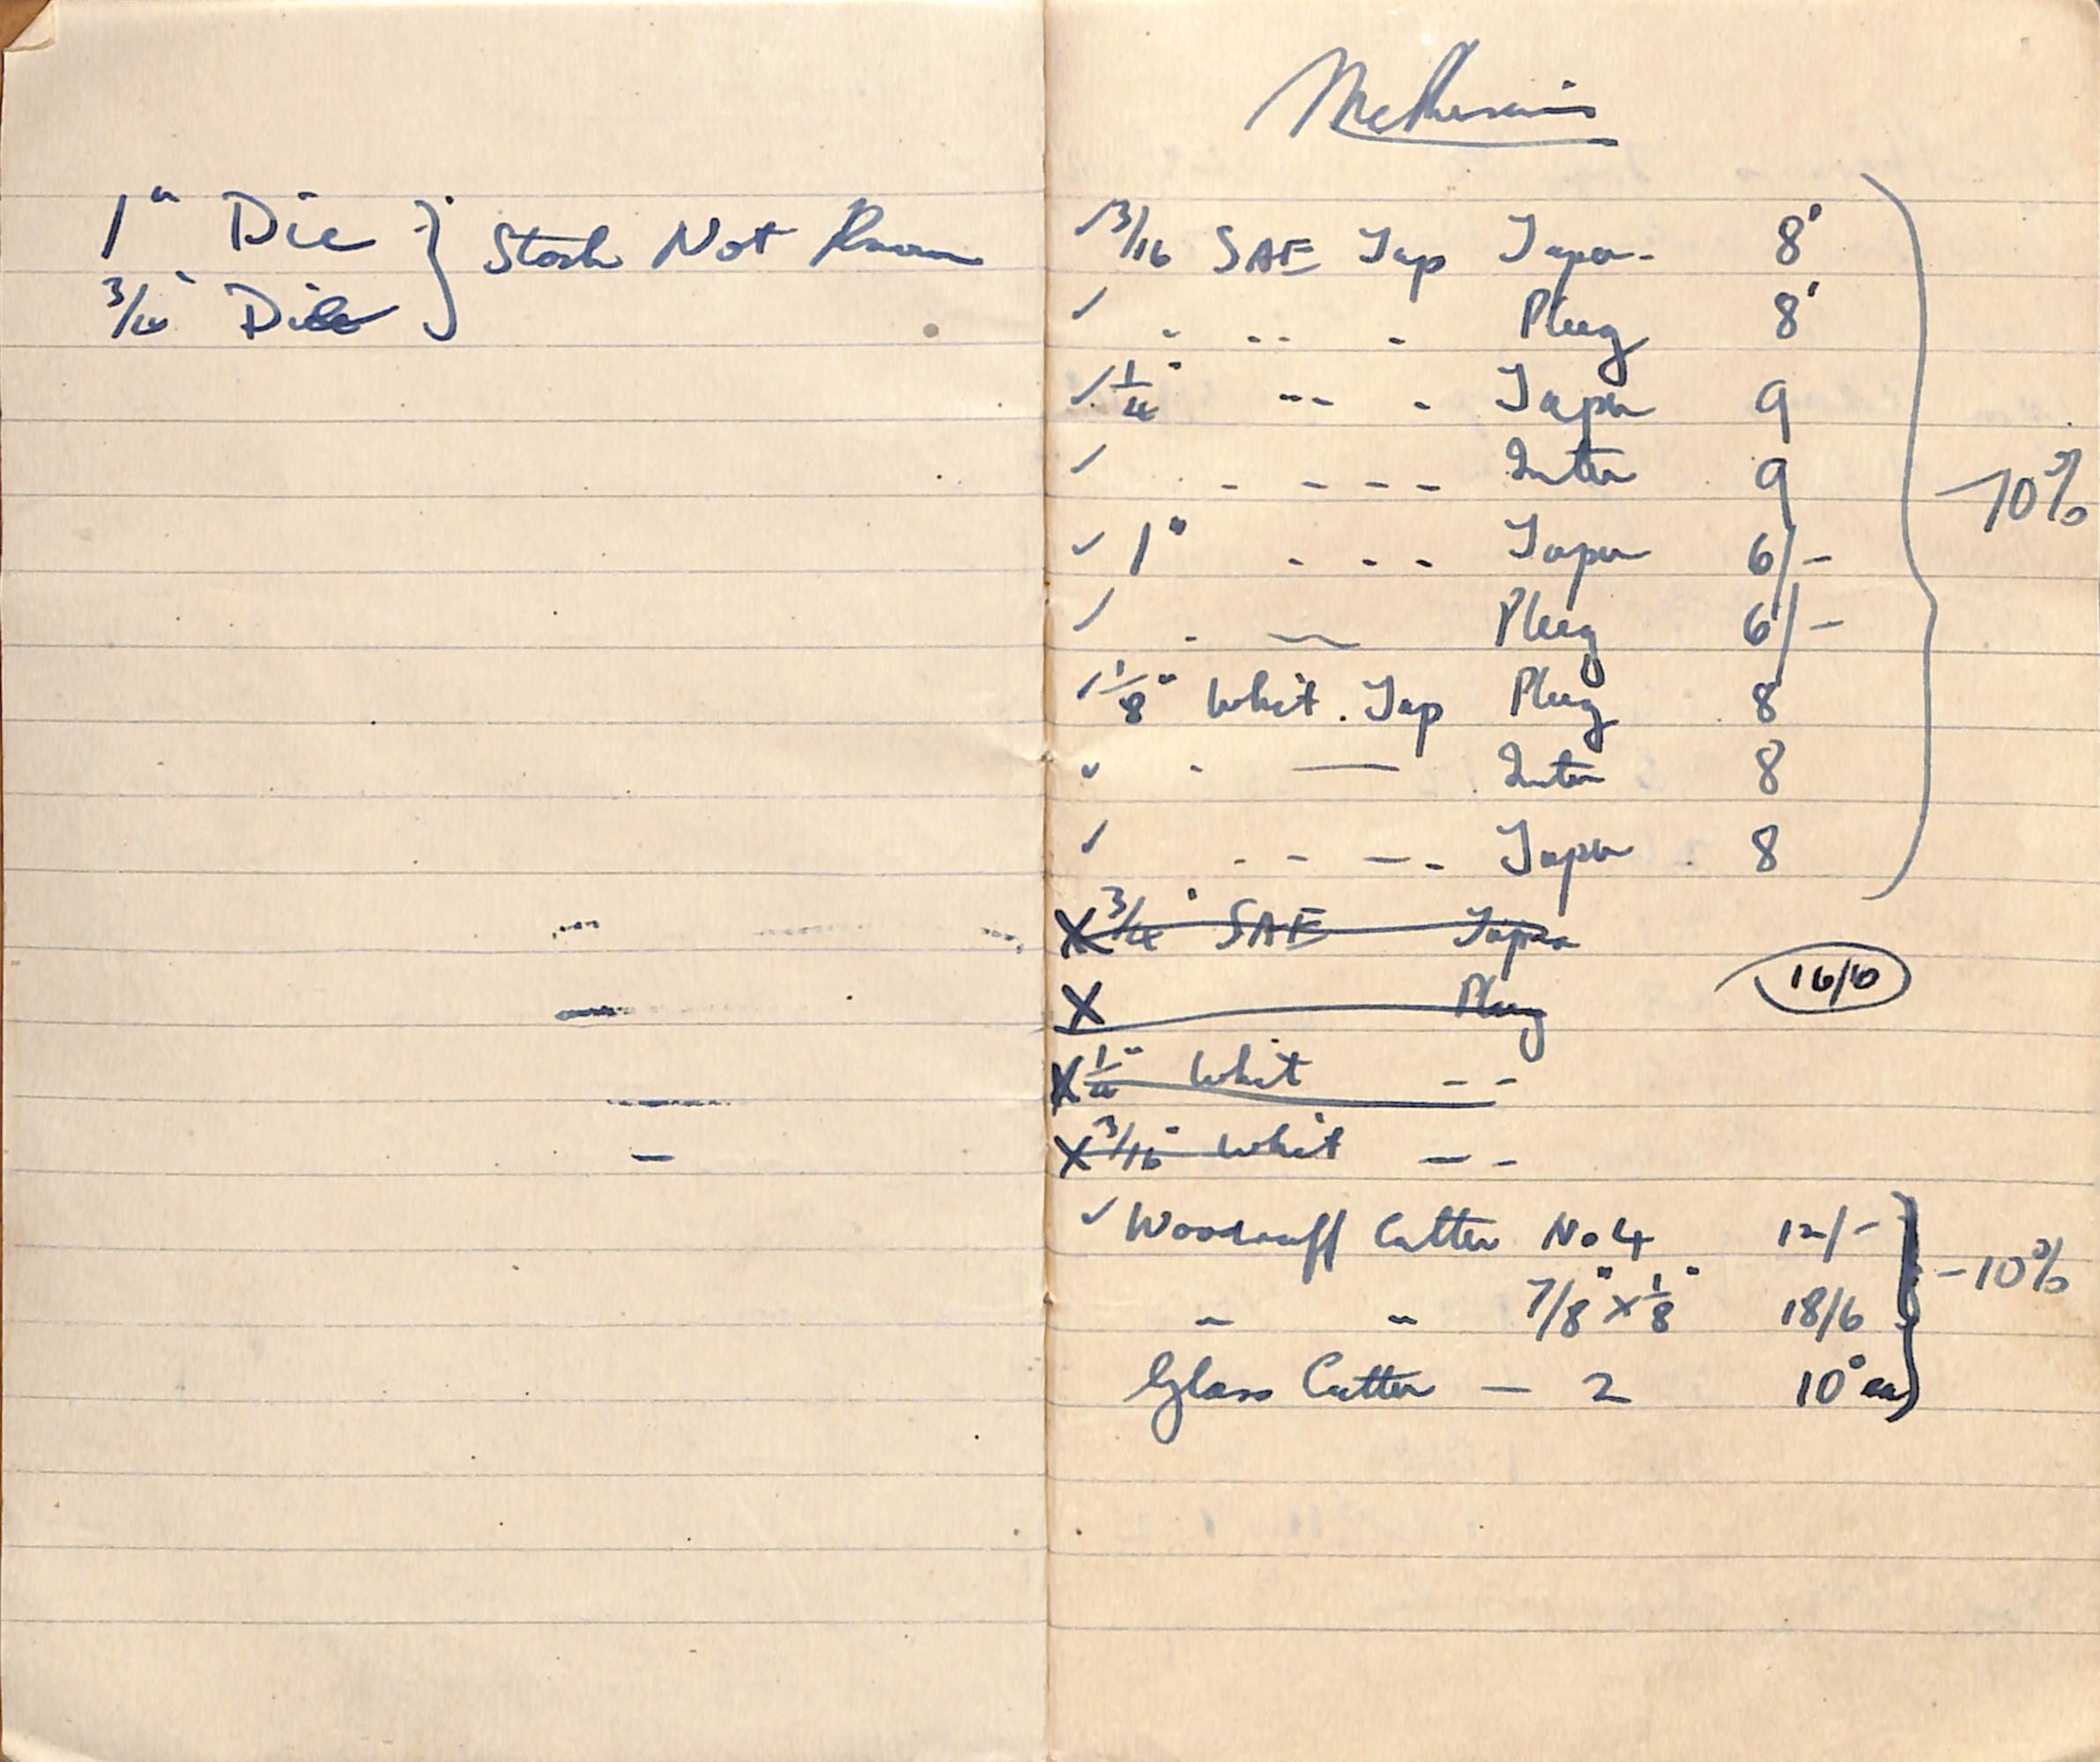 1" Die } Stock Not Known
3/4" Die
3/16 SAE Tap Taper 8'
✓ " " " Plug 8'
✓ 1/4" " " Taper 9
✓ " " " " Inter 9
✓ 1" " " " Taper 6/-
✓ " " Plug 6/-
✓ 1/8" Whit. Tap Plug 8
✓ " — Inter 8
✓ " " " " Taper 8
-10%
X 3/4" SAE Taper
X Plug 16/6
X 1/4" Whit " "
X 3/16" Whit " "
✓ Woodruff Cutter No 4 12/-
" " 7/8" x 1/8" 18/6
-10%
Glass Cutter — 2 10° ea